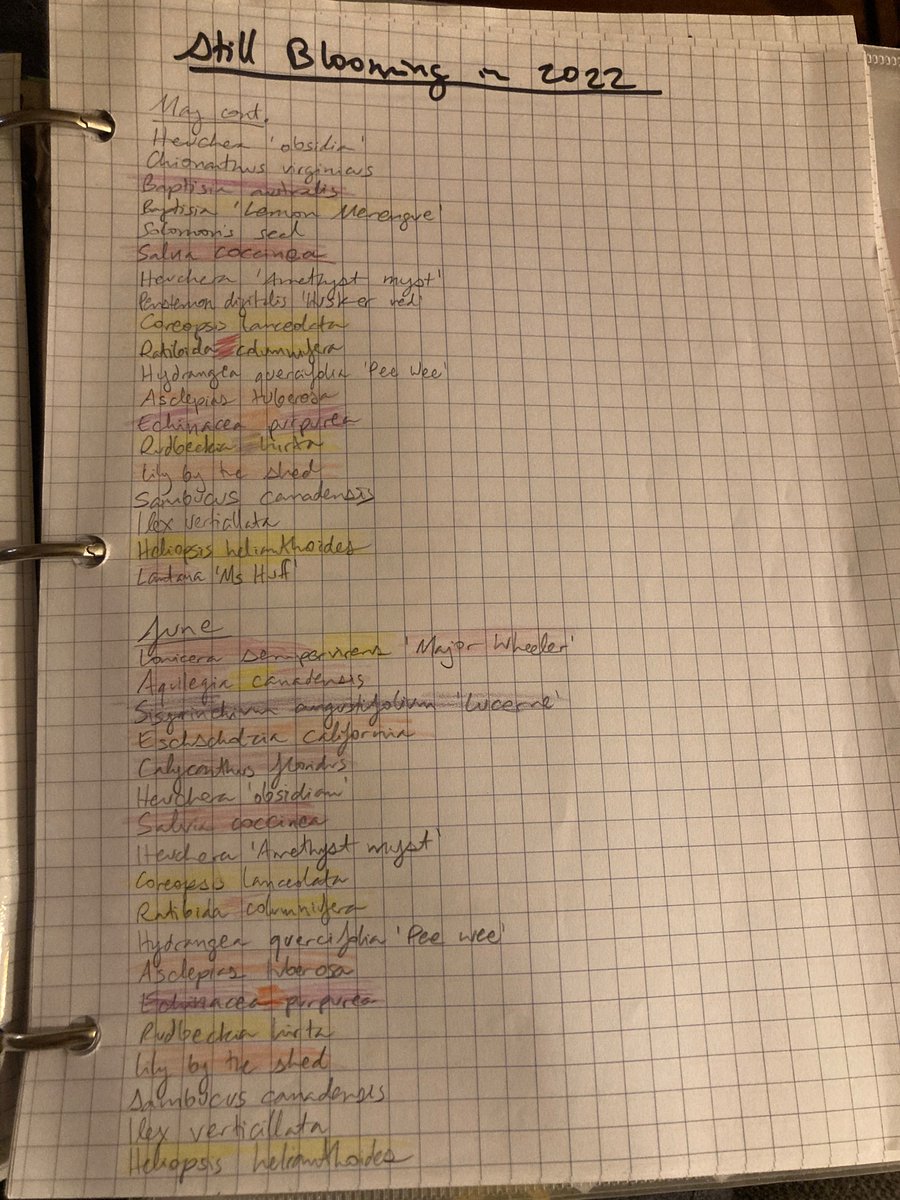 Still Blooming in 2022
May cont.
Heuchera 'obsidia'
Chionanthus virginicus
Baptisia australis
Baptisia 'Lemon Merengue'
Solomon's seal
Salvia coccinea
Heuchera 'Amethyst myst'
Penstemon digitalis 'Husker red'
Coreopsis lanceolata
Ratibida columnifera
Hydrangea quercifolia 'Pee Wee'
Asclepias tuberosa
Echinacea purpurea
Rudbeckia hirta
Lily by the shed
Sambucus canadensis
Ilex verticillata
Heliopsis helianthoides
Lantana 'Ms Huff'
June
Lonicera sempervirens 'Major Wheeler'
Aquilegia canadensis
Sisyrinchium angustifolium 'Lucerne'
Eschscholzia california
Calycanthus floridus
Heuchera 'obsidian'
Salvia coccinea
Heuchera 'Amethyst myst'
Coreopsis lanceolata
Ratibida columnifera
Hydrangea quercifolia 'Pee wee'
Asclepias tuberosa
Echinacea purpurea
Rudbeckia hirta
Lily by the shed
Sambucus canadensis
Ilex verticillata
Heliopsis helianthoides